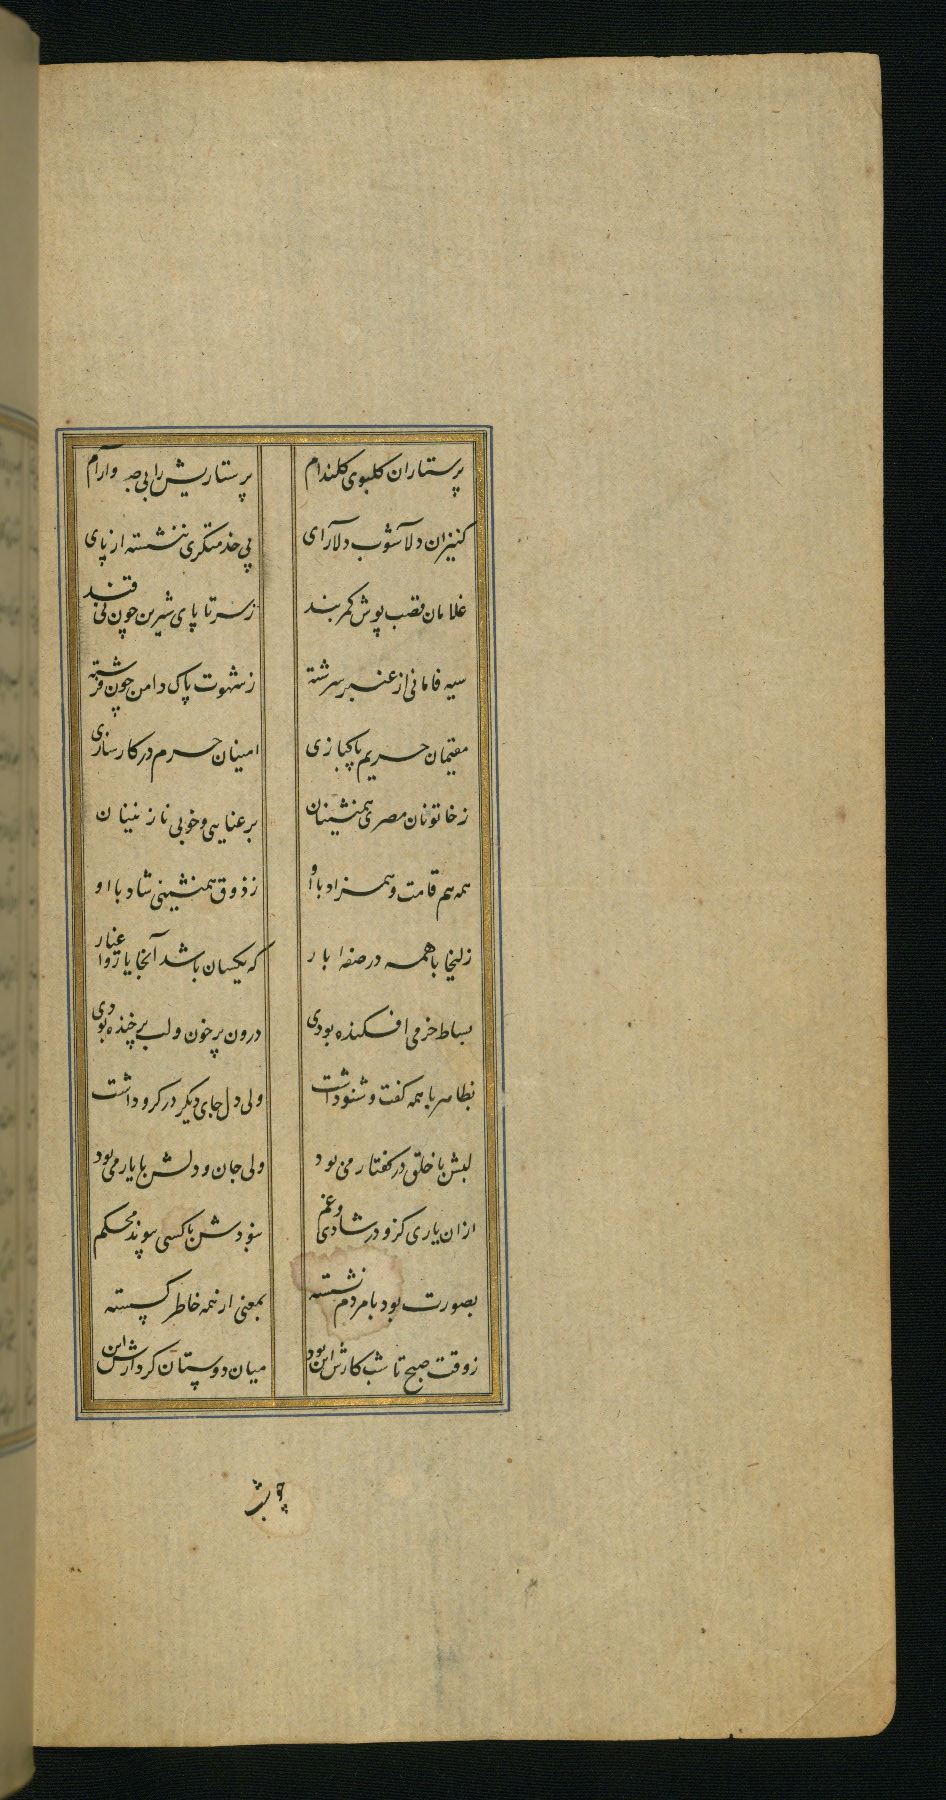 پرستاران کلبوی کلندام پرستاریش را بی صبر وارام
کنیزان دلاشوب دلارای پی خدمتکری ننشسته از پای
غلامان قصب پوش کمربند زسر تا پای شیرین چون نی قند
سیه فامانی از عنبر سرشته زشهوت پاک دامن چون فرشته
مقیمان حریم پاکبازی امینان حرم در کارسازی
زخاتونان مصری همنشینان برعنایی وخوبی نازنینان
همه هم قامت وهمزاد با او زذوق همنشینی شاد با او
زلیخا با همه در صفه بار که یکسان باشد آنجا یار واغیار
بساط خرمی افکنده بودی درون پر خون ولب پر خنده بودی
بظاهر با همه کفت وشنو داشت ولی دل جای دیکر در کرو داشت
لبش با خلق در کفتار می بود ولی جان ودلش با یار می بود
ازان یاری کزو در شادی وغم نبودش با کسی پیوند محکم
بصورت بود با مردم نشسته بمعنی از همه خاطر کسسته
زوقت صبح تا شب کارش این بود میان دوستان کردارش این
چو شب